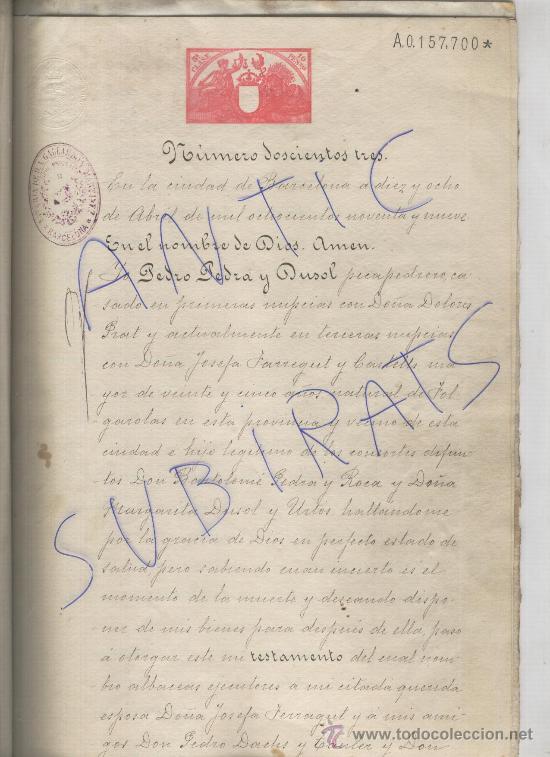 A.0.157,700*
Número doscientos tres.
En la ciudad de Barcelona a diez y ocho
de Abril de mil ochocientos noventa y nueve
En el nombre de Dios. Amen.
Yo Pedro Pedra y Dusol picapedrero, ca-
sado en primeras nupcias con Doña Dolores
Prat y actualmente en terceras nupcias
con Doña Josefa Farregut y Castells ma-
yor de veinte y cinco años natural de Fol-
garolas en esta provincia y vecino de esta
ciudad e hijo legítimo de los consortes difun-
tos Don Bartolomé Pedra y Roca y Doña
Margarita Dusol y hallandome
por la gracia de Dios en perfecto estado de
salud pero sabiendo cuan incierto es el
momento de la muerte y deseando dispo-
ner de mis bienes para después de ella, paso
á otorgar este mi testamento del cual nom-
bro albaceas ejecutores a mi citada querida
esposa Doña Josefa Ferragut y á mis ami-
gos Don Pedro y Don
ANTIC
SUBIRATS
BARCELONA
todocoleccion.net